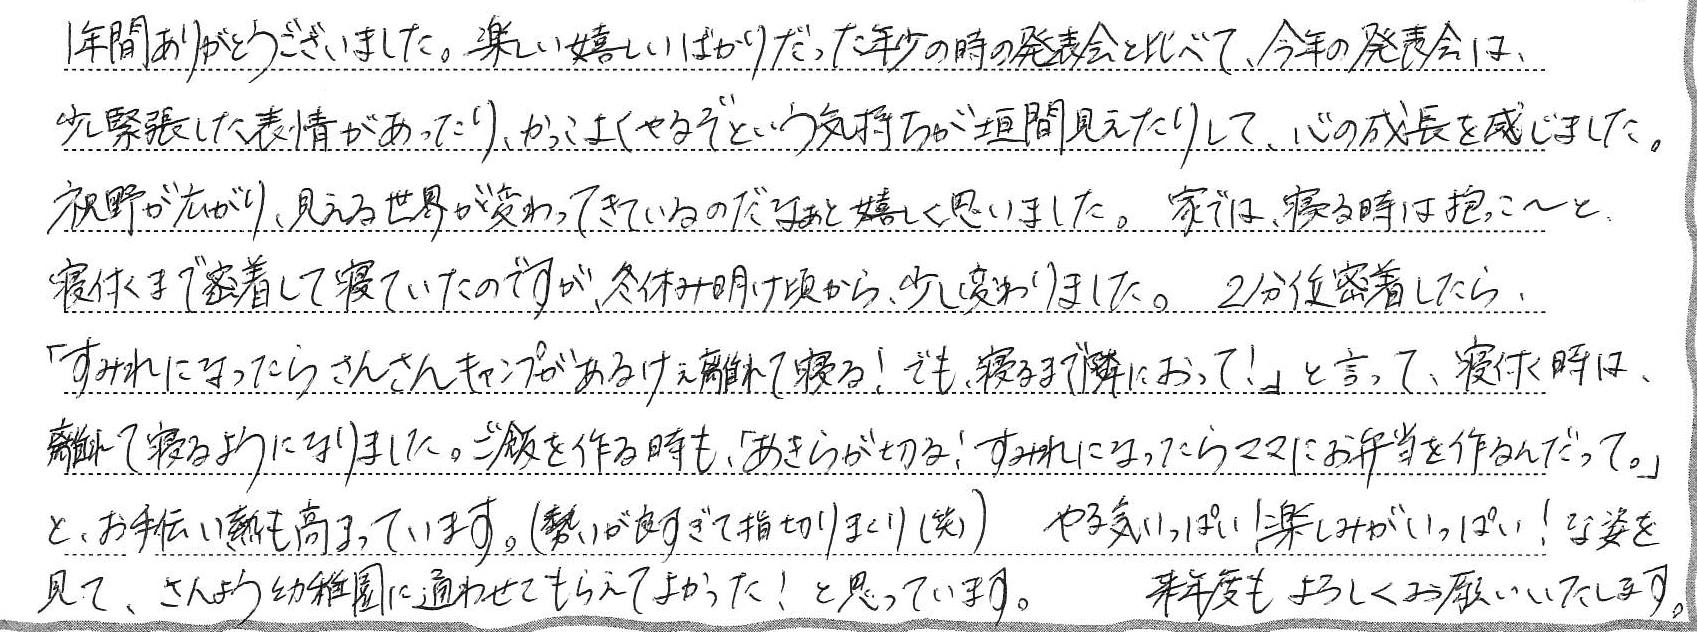 1年間ありがとうございました。楽しい嬉しいばかりだった年少の時の発表会と比べて、今年の発表会は、
少し緊張した表情があったり、かっこよくやるぞという気持ちが垣間見えたりして、心の成長を感じました。
視野が広がり、見える世界が変わってきているのだなぁと嬉しく思いました。 家では、寝る時は抱っこ〜と、
寝付くまで密着して寝ていたのですが、冬休み明け頃から、少し変わりました。 2分位密着したら、
「すみれになったらさんさんキャンプがあるけぇ離れて寝る！でも、寝るまで隣におって！」と言って、寝付く時は、
離れて寝るようになりました。ご飯を作る時も、「あきらが切る！すみれになったらママにお弁当を作るんだって。」
と、お手伝い熱も高まっています。（勢いが良すぎて指切りまくり（笑）） やる気いっぱい！楽しみがいっぱい！な姿を
見て、さんよう幼稚園に通わせてもらえてよかった！と思っています。 来年度もよろしくお願いいたします。